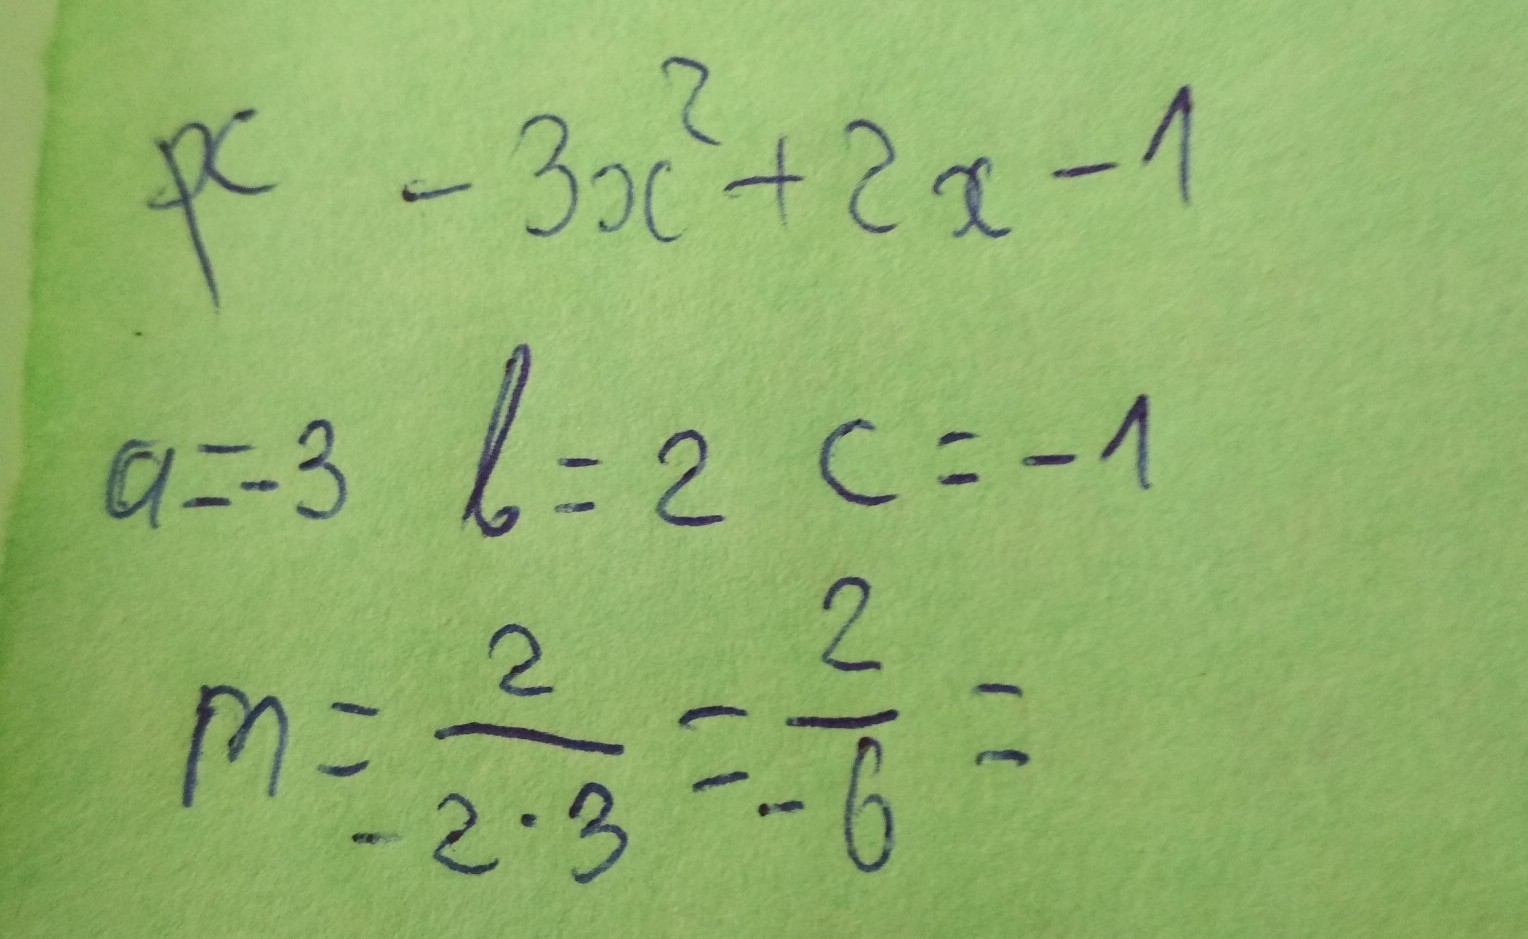 -3x²+2x-1
a=-3 b=2 c=-1
m=2/-2·3=2/-6=